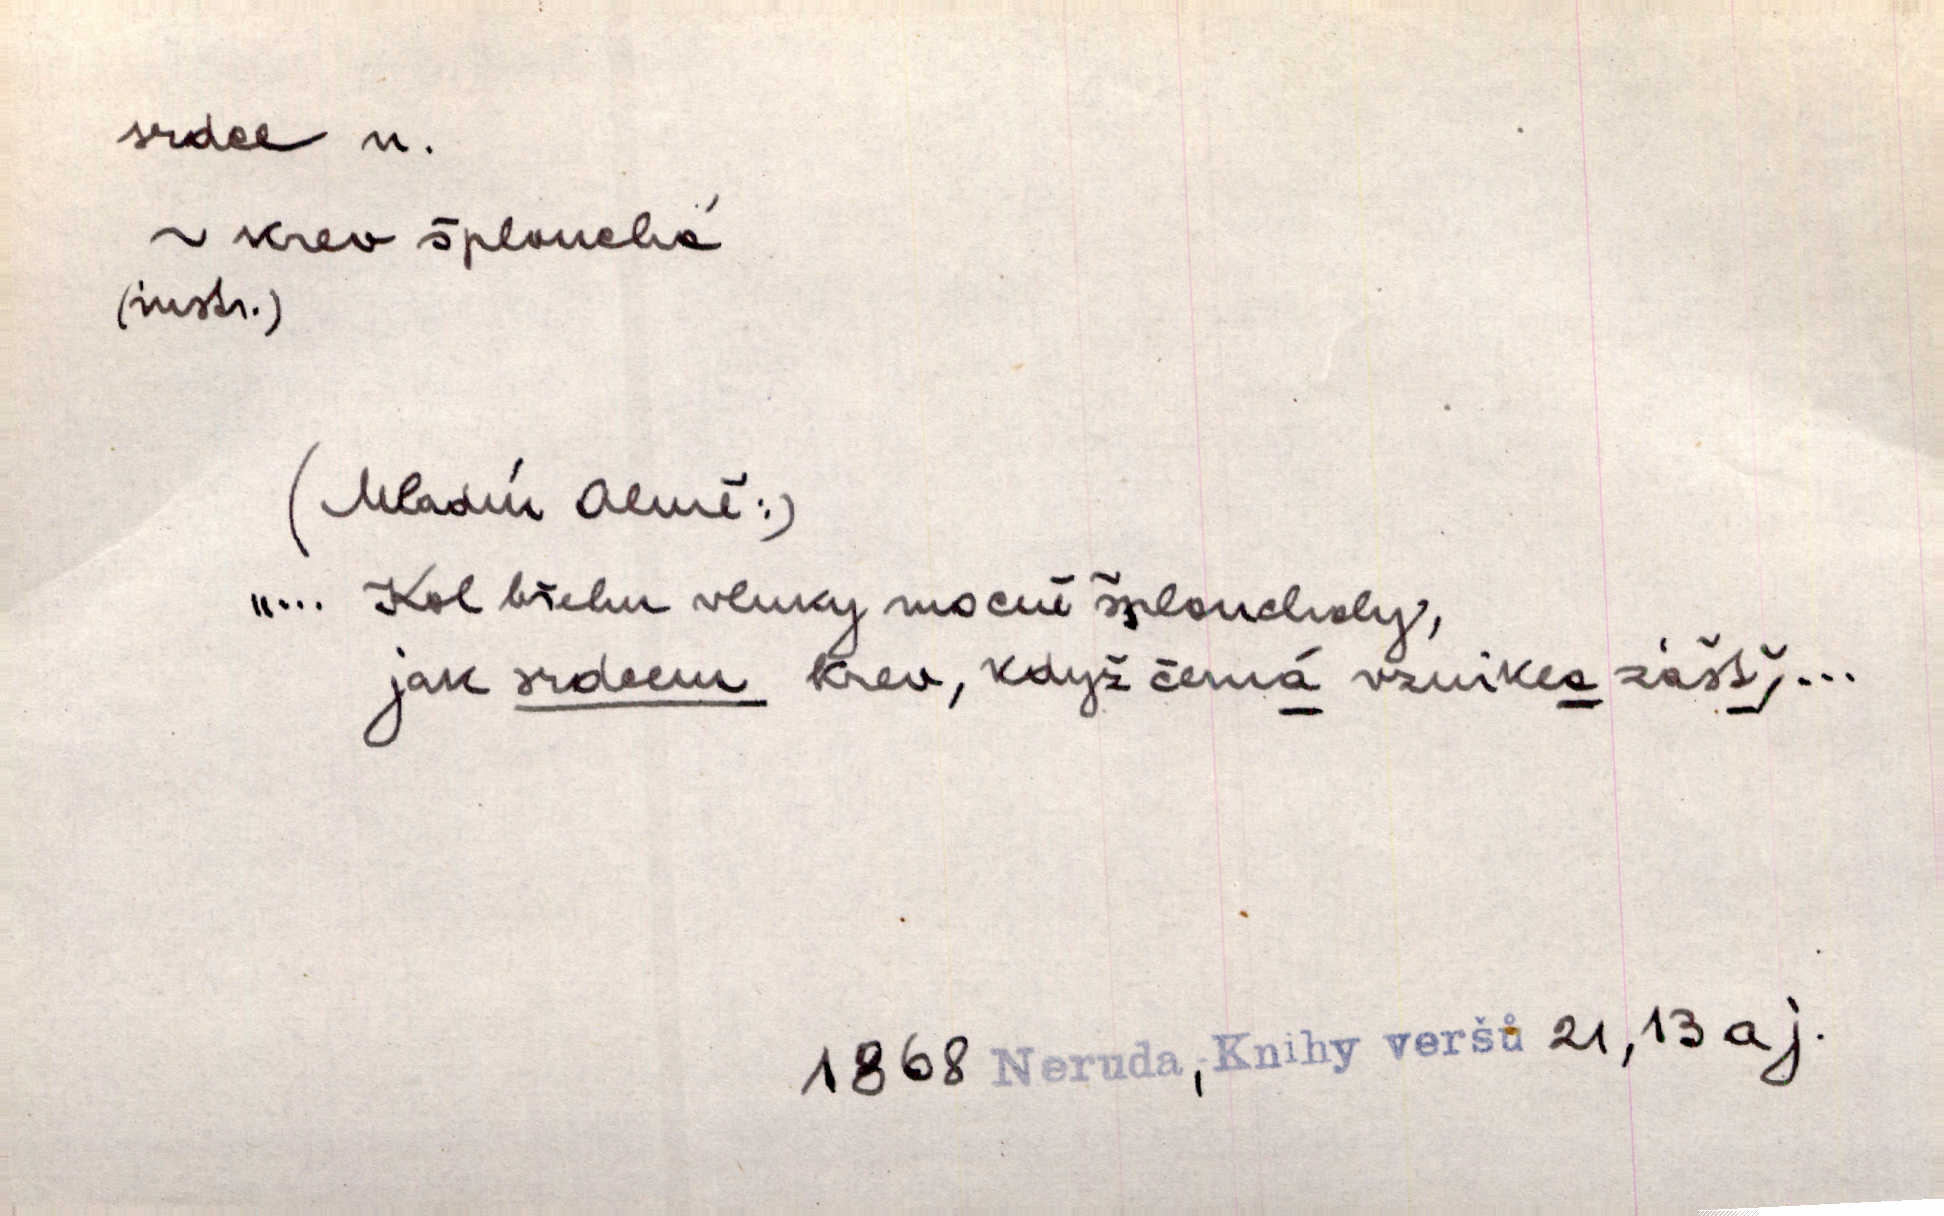 srdce n.
~ krev šplouchá
(instr.)
(Mladík Almě:)
„... Kol břehu vlnky mocně šplouchaly,
jak srdcem krev, když černá vzniká zášť,...
1868 Neruda, Knihy veršů 21,13 a j.